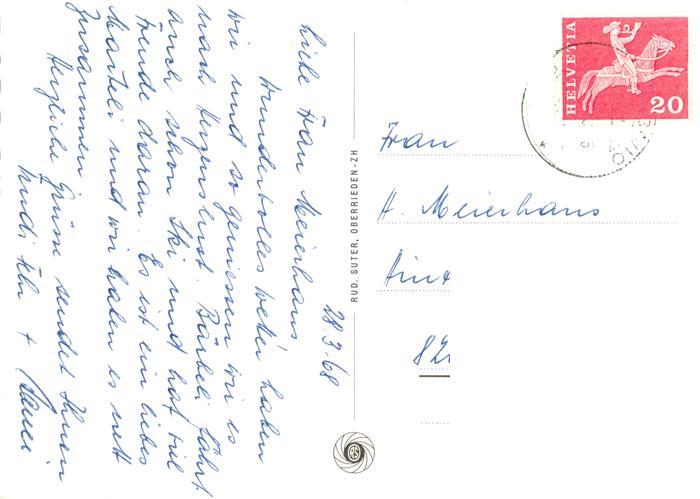 28.3.68
Liebe Frau Meierhans
Wundervolles Wetter haben
wir und so geniessen wir es
nach Herzenslust. Bärbeli fährt
auch schon Ski und hat viel
Freude daran. Es ist ein liebes
Marteli und wir haben es nett
zusammen
Herzliche Grüsse sendet Ihnen
RUD. SUTER, OBERRIEDEN-ZH
HELVETIA
20
Frau
A. Meierhans